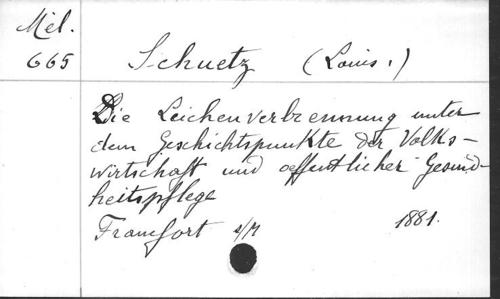 Mél.
665
Schuetz (Louis.)
Die Leichenverbrennung unter
dem Geschichtspunkte der Volks-
wirtschaft und oeffentlicher Gesund-
heitspflege
Francfort s/M 1881.